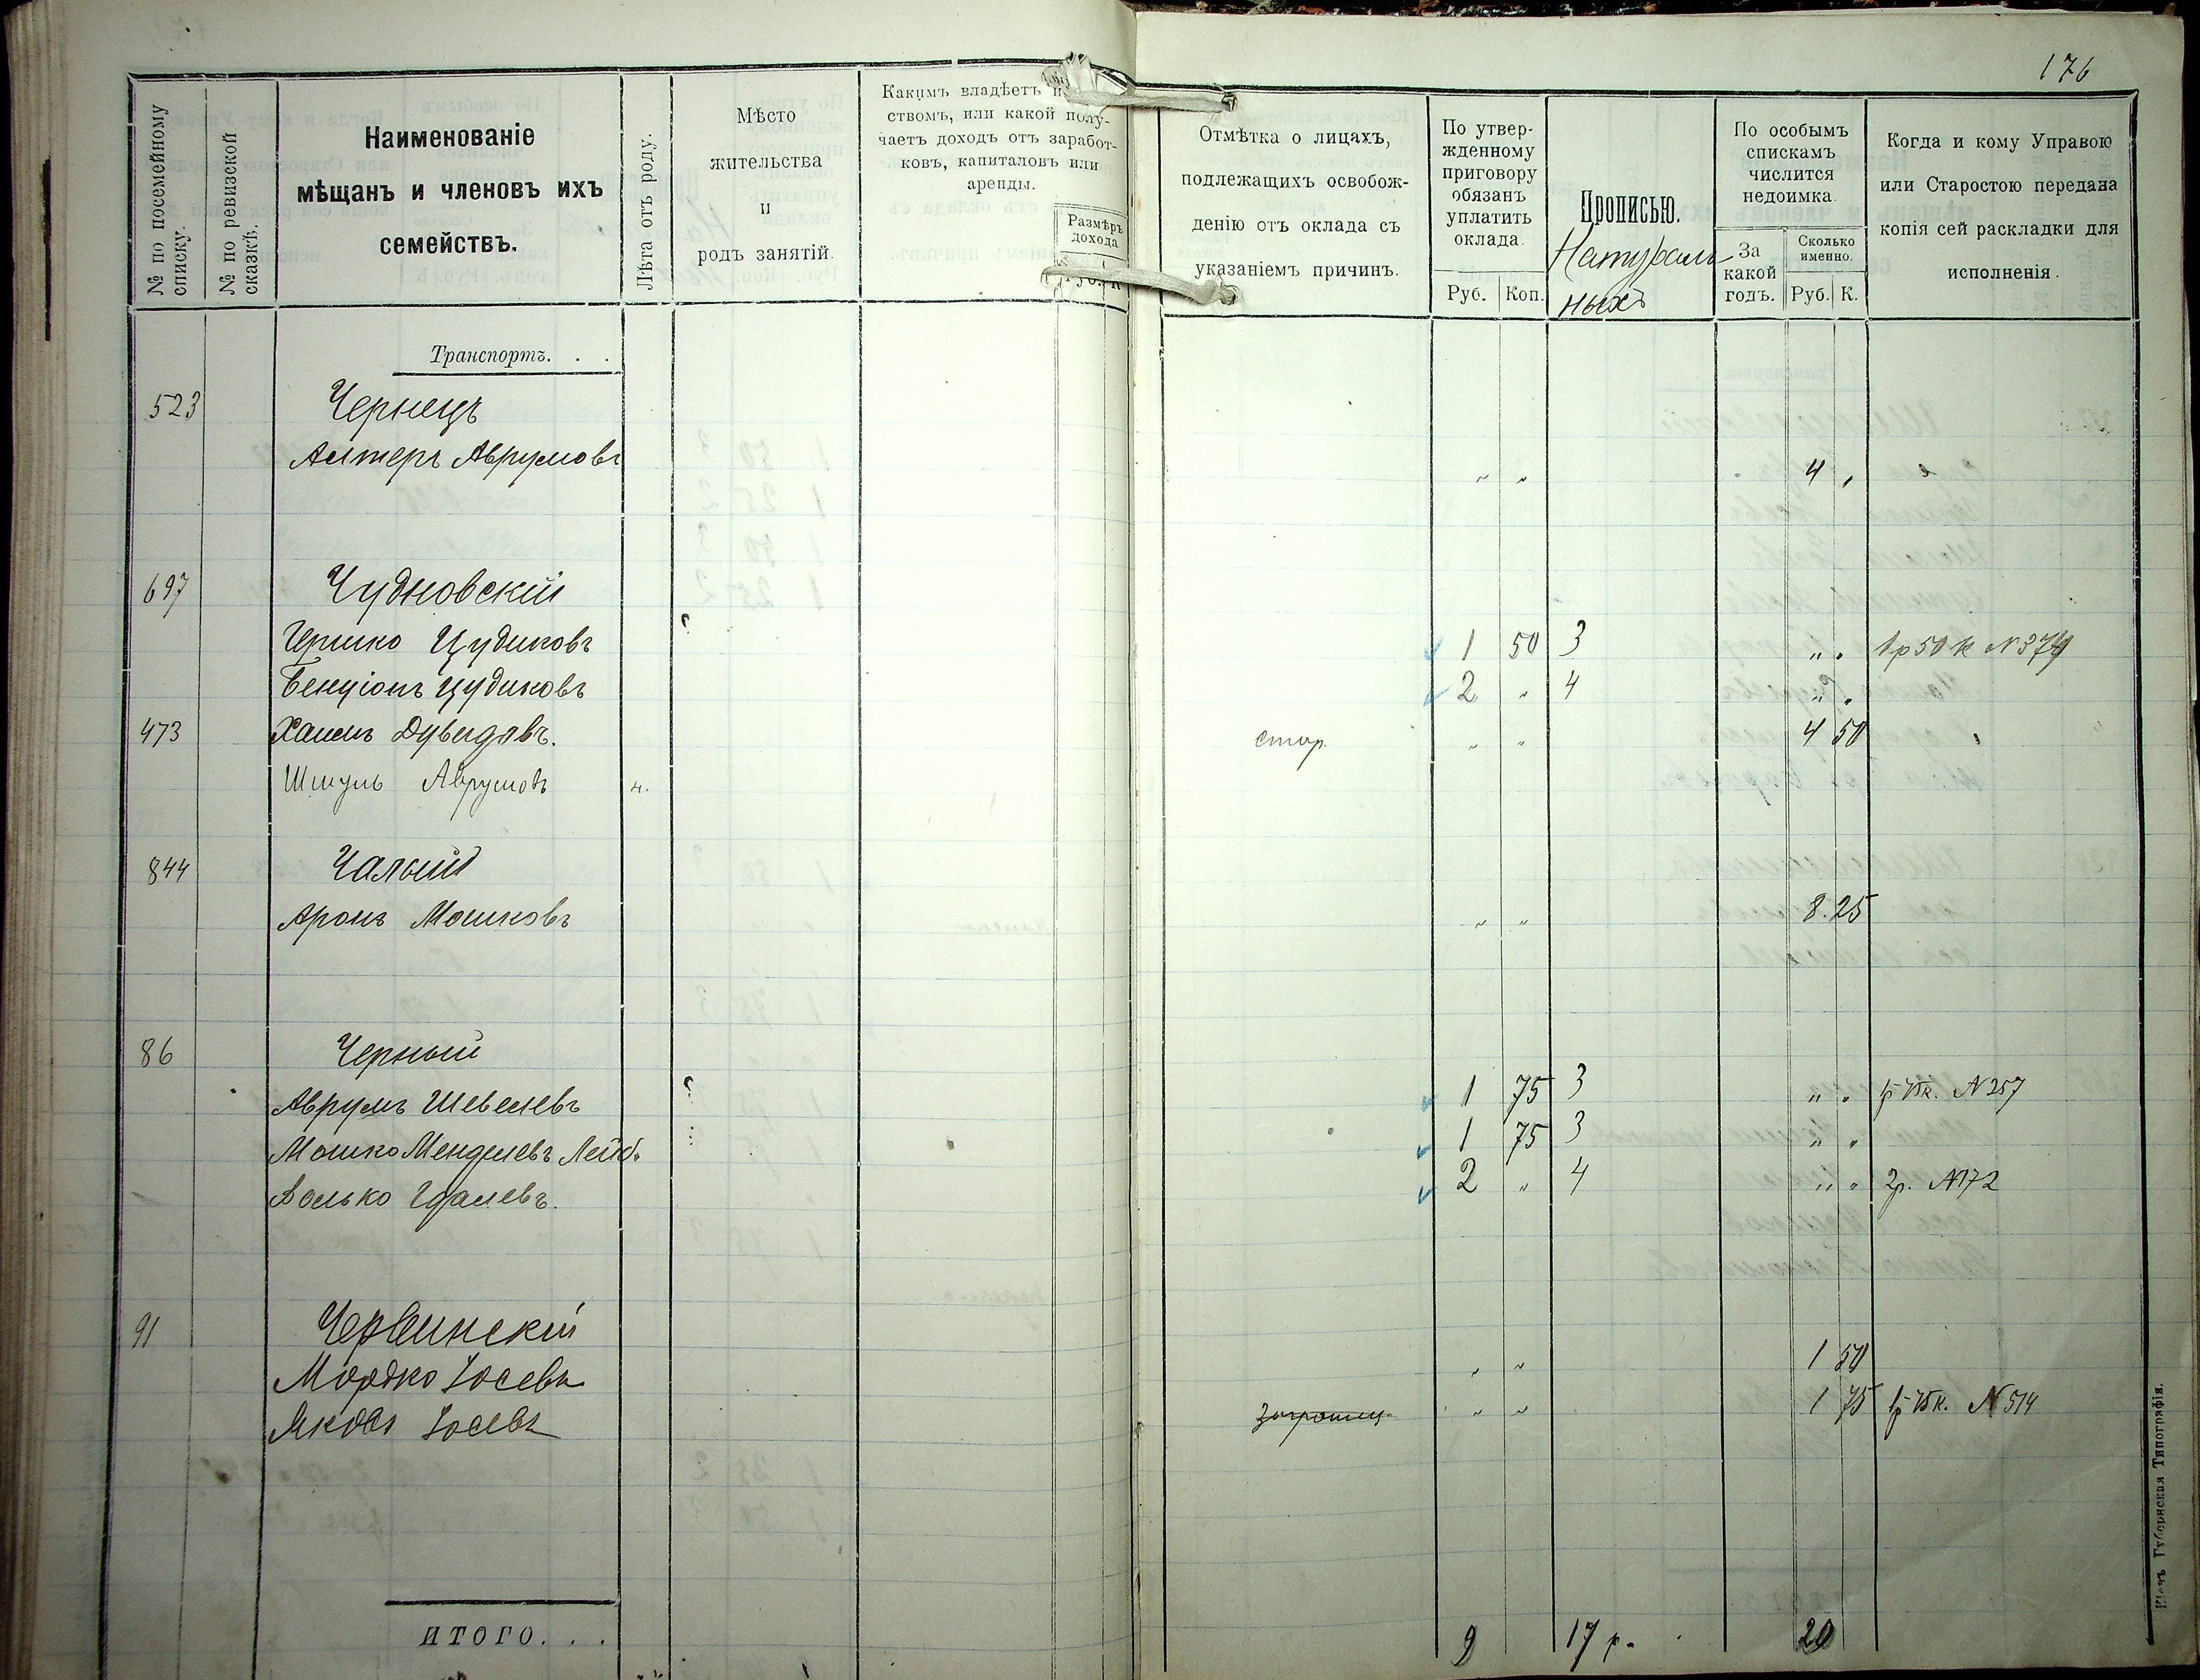 176
№ по посемейному списку.
№ по ревизской сказкѣ.
Наименованіе
мѣщанъ и членовъ ихъ
семействъ.
Лѣта отъ роду.
Мѣсто
жительства
и
родъ занятій.
Какимъ владѣетъ
ствомъ, или какой полу-
чаетъ доходъ отъ заработ-
ковъ, капиталовъ или
аренды.
Размѣръ
дохода
Отмѣтка о лицахъ,
подлежащихъ освобож-
денію отъ оклада съ
указаніемъ причинъ.
По утвер-
жденному
приговору
обязанъ
уплатить
оклада.
Руб. Коп.
Прописью.
Натураль-
ныхъ
По особымъ
спискамъ
числится
недоимка.
За
какой
годъ.
Сколько
именно.
Руб. К.
Когда и кому Управою
или Старостою передана
копія сей раскладки для
исполненія.
Транспортъ. . .
523 Чернецъ
Алтеръ Аврумовъ " " 4 "
697 Чудновскій
Гершко Цудиковъ ? 1 50 3 " " 1р 50 к N 374
Бенціонъ Цудиковъ 2 " 4 " "
473 Хаимъ Дувидовъ. стар. " " 4 50
Шмуль Аврумовъ н.
844 Чалый
Аронъ Мошковъ " " 8.25
86 Черный
Аврумъ Шевелевъ ? 1 75 3 " " 1р 75к. N 257
Мошко Менделевъ Лейб. 1 75 3 " "
Волько Идалевъ. 2 " 4 " " 2р. N172
91 Червинскій
Мордко Іосевъ " " 1 50
Яковъ Іосевъ " " 1 75 1р 75к. N 514
ИТОГО. . . 9 17 р. 20
Кіевъ Губернская Типографія.